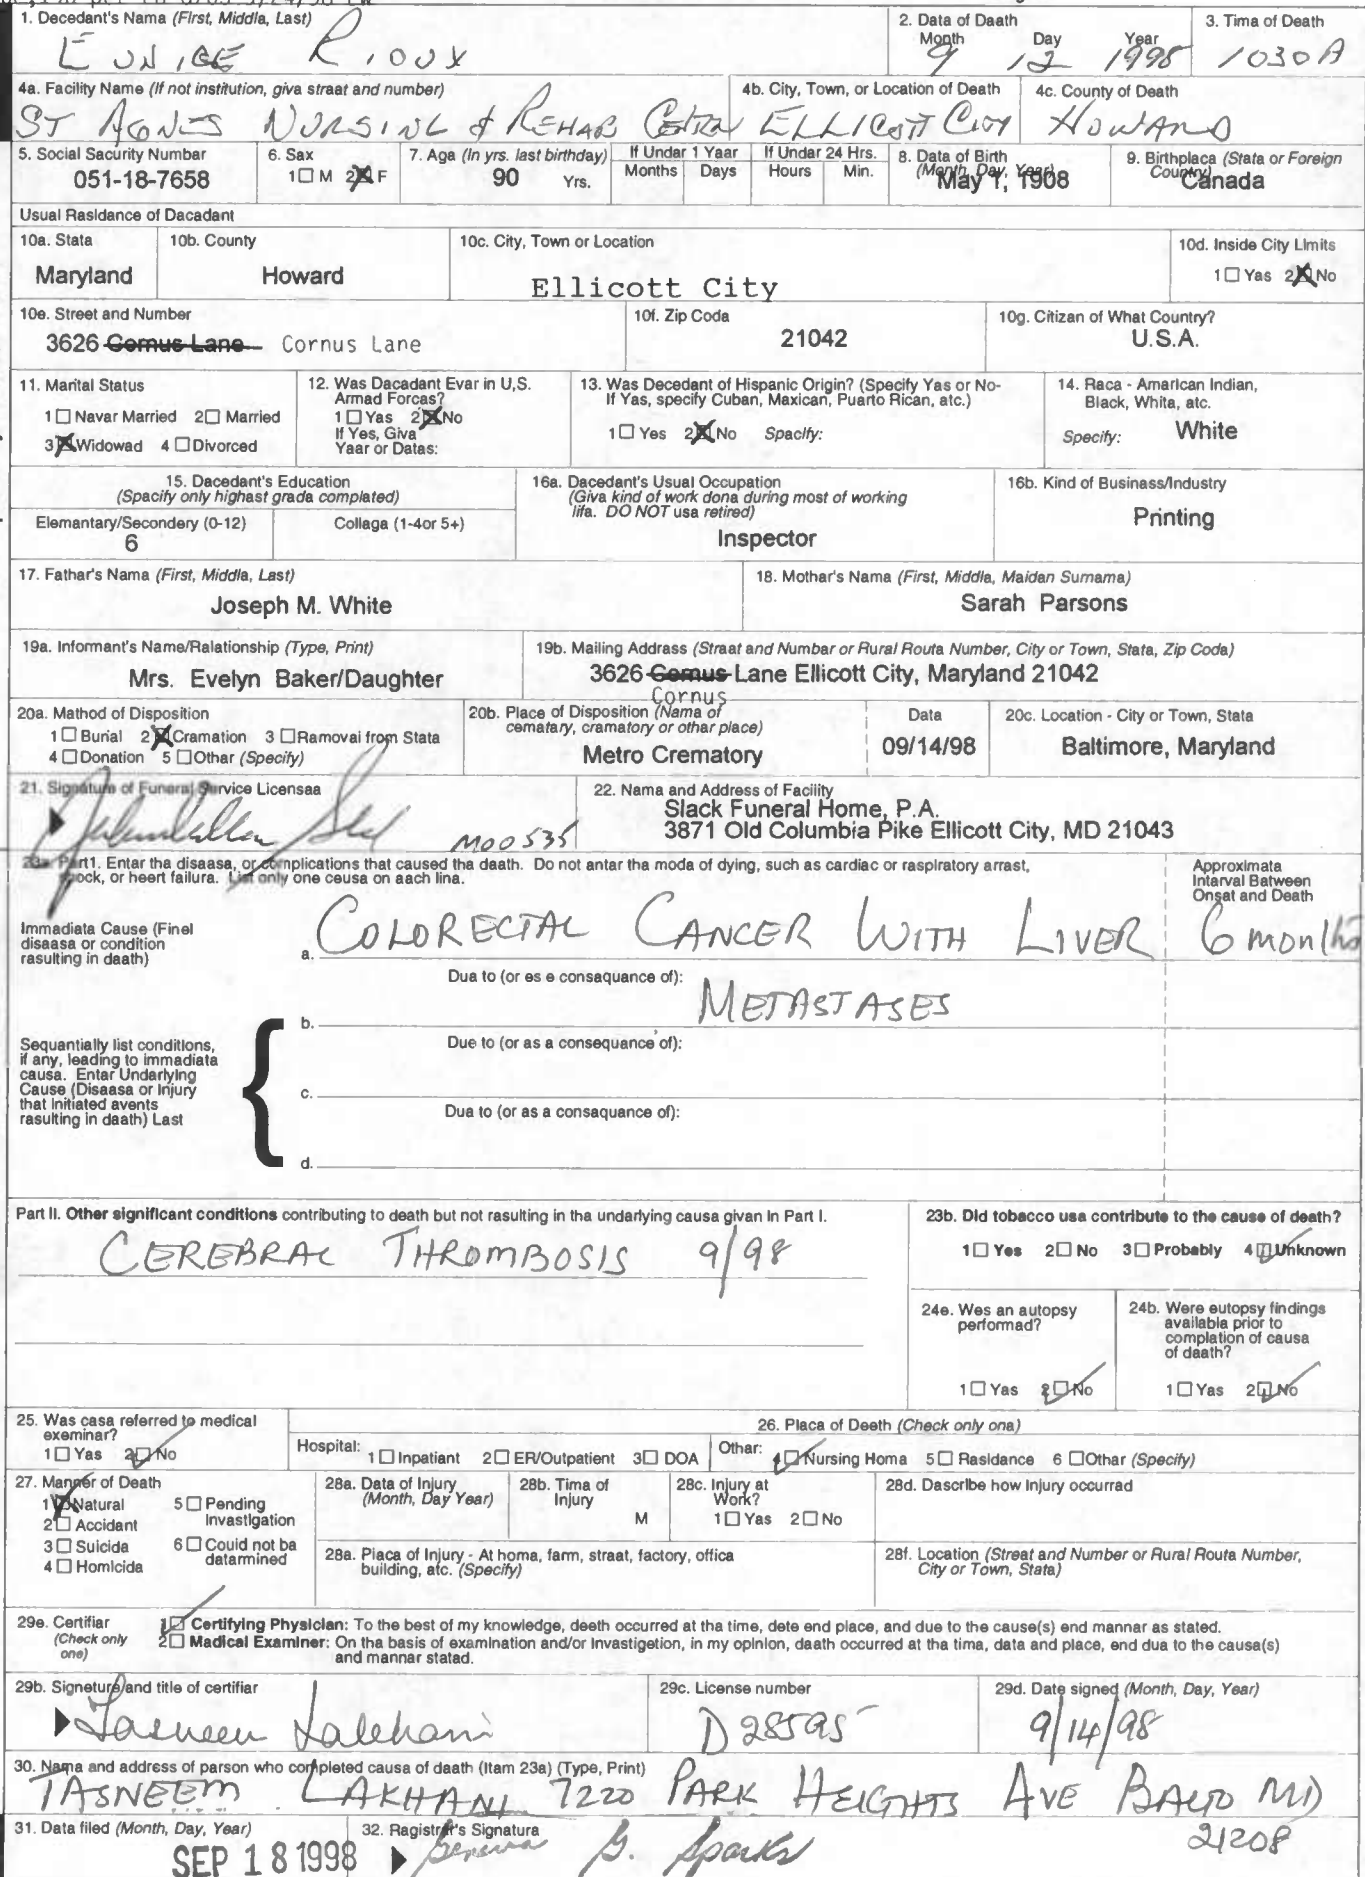 1. Decedant's Name (First, Middla, Last)
EUNICE RIOUX
2. Data of Daath
Month Day Year
9 12 1998
3. Tima of Death
1030A
4a. Facility Name (If not institution, giva straat and number)
ST AGNES NURSING & REHAB
4b. City, Town, or Location of Death
ELLICOTT CITY
4c. County of Death
HOWARD
5. Social Sacurity Numbar
051-18-7658
6. Sax
1☐ M 2☒ F
7. Aga (In yrs. last birthday)
90 Yrs.
If Under 1 Yaar
Months Days
If Undar 24 Hrs.
Hours Min.
8. Data of Birth
(Month, Day, Year)
May 1, 1908
9. Birthplaca (Stata or Foreign
Country)
Canada
Usual Rasldance of Dacadant
10a. Stata
Maryland
10b. County
Howard
10c. City, Town or Location
Ellicott City
10d. Inside City Limits
1☐ Yas 2☒ No
10e. Street and Number
3626 Cemus Lane Cornus Lane
10f. Zip Coda
21042
10g. Citizan of What Country?
U.S.A.
11. Marital Status
1☐ Navar Married 2☐ Married
3☒ Widowad 4☐ Divorced
12. Was Dacadant Evar in U,S.
Armad Forcas?
1☐ Yas 2☒ No
If Yes, Giva
Yaar or Datas:
13. Was Decedant of Hispanic Origin? (Specify Yas or No-
If Yas, specify Cuban, Maxican, Puarto Rican, atc.)
1☐ Yes 2☒ No Spacify:
14. Raca - Amarican Indian,
Black, Whita, atc.
Specify: White
15. Dacedant's Education
(Spacify only highast grada complatad)
Elamantary/Secondery (0-12)
6
Collaga (1-4or 5+)
16a. Dacedant's Usual Occupation
(Giva kind of work dona during most of working
lifa. DO NOT usa retired)
Inspector
16b. Kind of Businass/Industry
Printing
17. Fathar's Name (First, Middla, Last)
Joseph M. White
18. Mothar's Nama (First, Middla, Maidan Surnama)
Sarah Parsons
19a. Informant's Name/Ralationship (Type, Print)
Mrs. Evelyn Baker/Daughter
19b. Mailing Address (Straat and Numbar or Rural Routa Number, City or Town, Stata, Zip Coda)
3626 Cemus Lane Ellicott City, Maryland 21042
Cornus
20a. Mathod of Disposition
1☐ Burial 2☒ Cramation 3☐ Ramovai from Stata
4☐ Donation 5☐ Othar (Specify)
20b. Place of Disposition (Nama of
cematary, cramatory or othar place)
Metro Crematory
Data
09/14/98
20c. Location - City or Town, Stata
Baltimore, Maryland
21. Signatura of Funeral Service Licensaa
M00535
22. Nama and Address of Facility
Slack Funeral Home, P.A.
3871 Old Columbia Pike Ellicott City, MD 21043
23a. Part1. Entar tha disaasa, or complications that causad tha daath. Do not antar tha moda of dying, such as cardiac or raspiratory arrast,
shock, or heert failura. List only one ceusa on aach lina.
Approximata
Intarval Batween
Onsat and Death
Immadiata Cause (Finel
disaasa or condition
rasulting in daath)
a. COLORECTAL CANCER WITH LIVER 6 months
Dua to (or es e consaquance of):
METASTASES
b.
Due to (or as a consequance of):
Sequantially list conditions,
if any, leading to immadiata
causa. Entar Undarlying
Cause (Disaasa or Injury
that initiated avents
rasulting in daath) Last
c.
Dua to (or as a consaquance of):
d.
Part II. Other significant conditions contributing to death but not rasulting in tha undarlying causa givan In Part I.
CEREBRAL THROMBOSIS 9/98
23b. Did tobacco usa contribute to the cause of death?
1☐ Yes 2☐ No 3☐ Probably 4☑ Unknown
24e. Wes an autopsy
performad?
1☐ Yas 2☑ No
24b. Were eutopsy findings
availabla prior to
complation of causa
of daath?
1☐ Yas 2☑ No
25. Was casa referred to medical
exeminar?
1☐ Yas 2☑ No
26. Placa of Deeth (Check only ona)
Hospital: 1☐ Inpatiant 2☐ ER/Outpatient 3☐ DOA
Othar: 4☑ Nursing Homa 5☐ Rasidance 6☐ Othar (Specify)
27. Mannar of Death
1☒ Natural
2☐ Accidant
3☐ Suicida
4☐ Homlcida
5☐ Pending
Invastlgation
6☐ Couid not ba
datarmined
28a. Data of Injury
(Month, Day Year)
28b. Tima of
Injury
M
28c. Injury at
Work?
1☐ Yas 2☐ No
28d. Describe how Injury occurrad
28a. Piaca of Injury - At homa, farm, straat, factory, offica
building, atc. (Specify)
28f. Location (Streat and Number or Rural Routa Number,
City or Town, Stata)
29e. Certifiar
(Check only
one)
1☑ Certifying Physician: To the best of my knowledge, deeth occurred at tha time, dete end place, and due to the cause(s) end mannar as stated.
2☐ Madical Examiner: On tha basis of examination and/or Invastigetion, in my opinion, daath occurred at tha tima, data and place, end dua to the causa(s)
and mannar statad.
29b. Signeture and title of certifiar
Tasneem Lakhani
29c. License number
D 28595
29d. Date signed (Month, Day, Year)
9/14/98
30. Nama and address of parson who completed causa of daath (Itam 23a) (Type, Print)
TASNEEM LAKHANI 7220 PARK HEIGHTS AVE BALTO MD
21208
31. Data filad (Month, Day, Year)
SEP 18 1998
32. Ragistrar's Signatura
Geneva G. Sparks